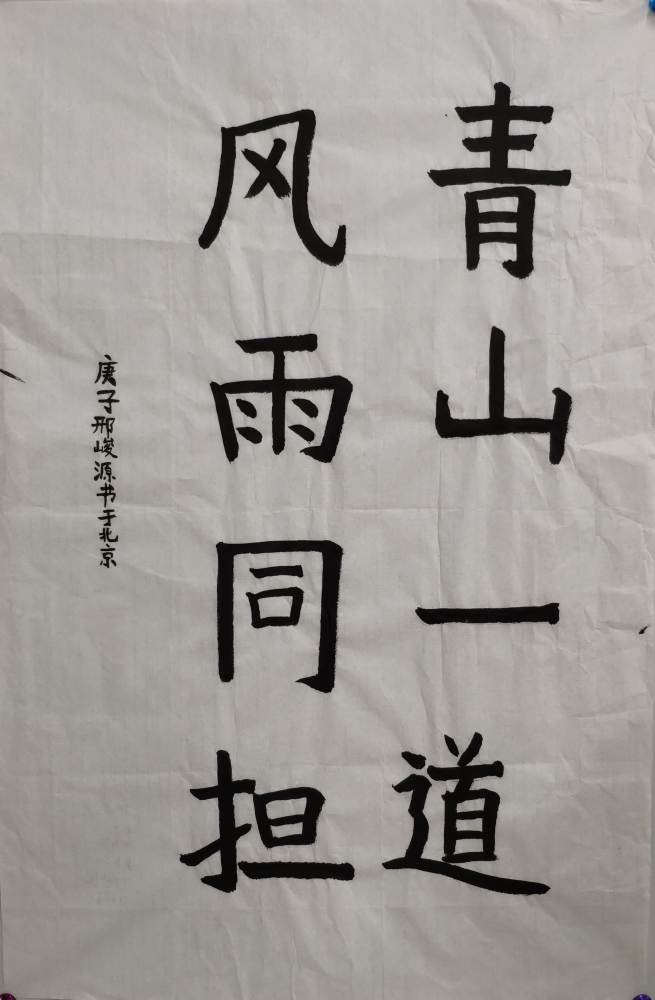 青山一道
风雨同担
庚子邢峻源书于北京